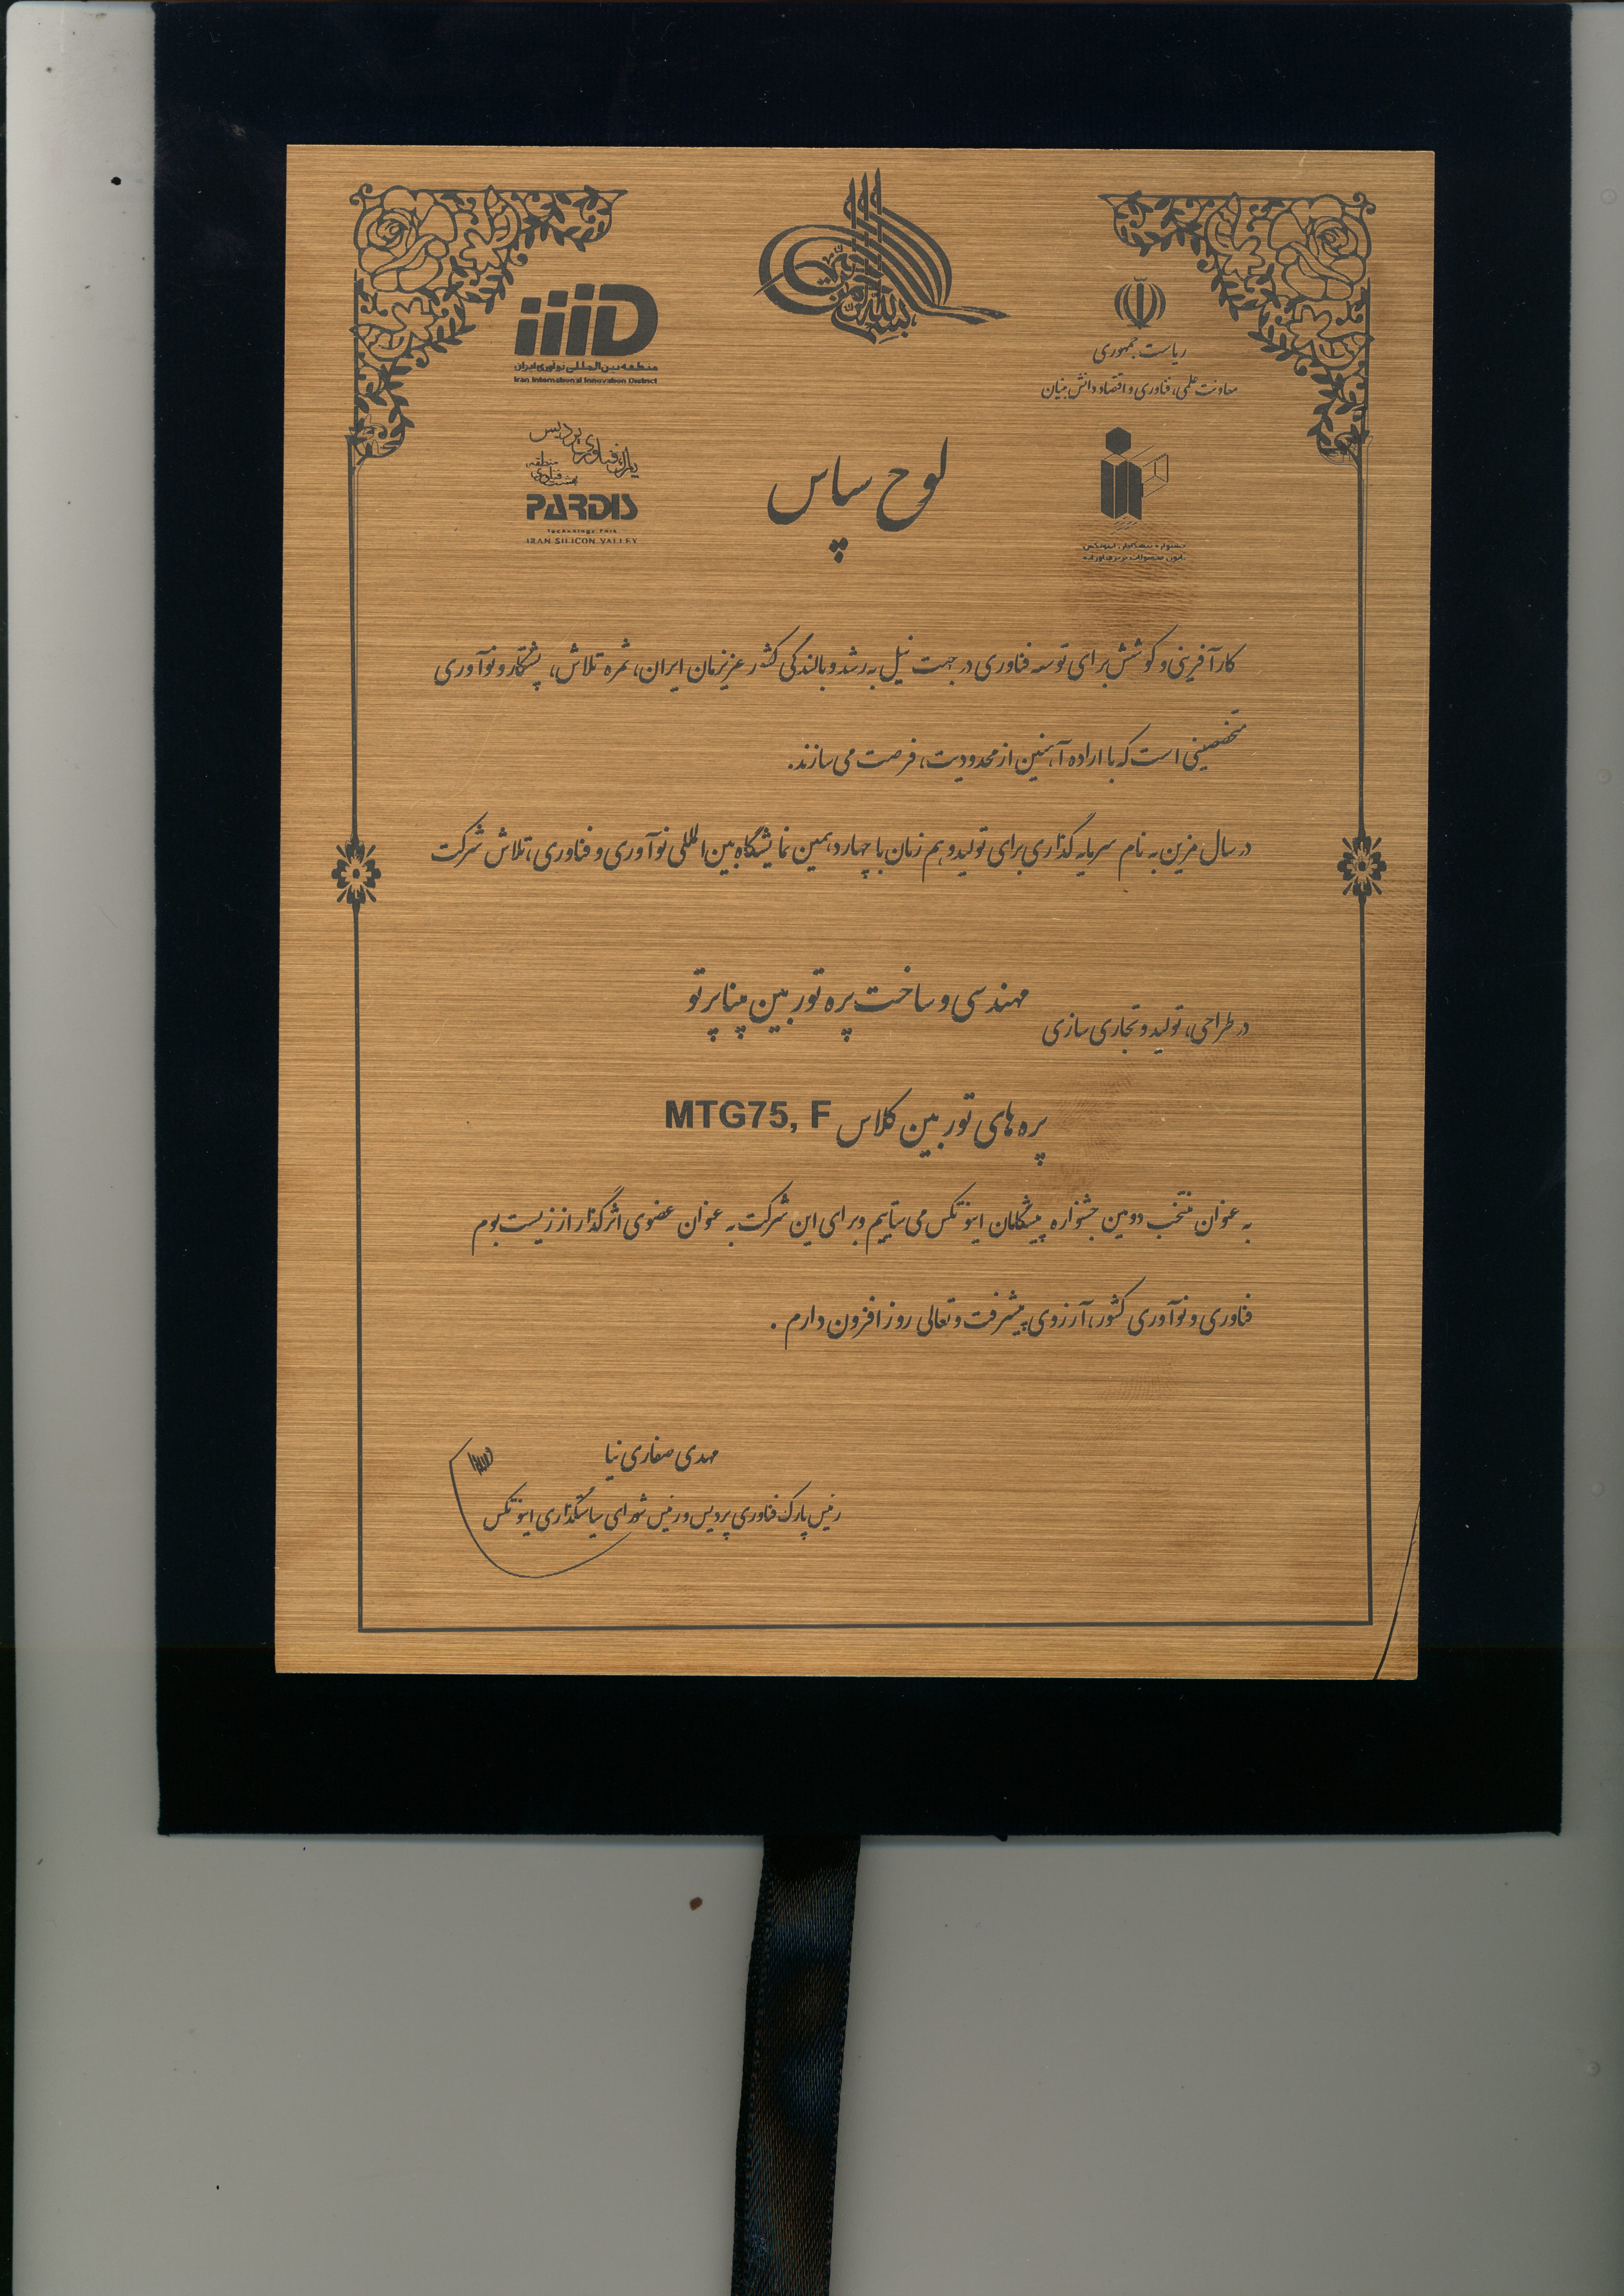 بسم الله الرحمن الرحیم
ریاست جمهوری
معاونت علمی، فناوری و اقتصاد دانش بنیان
منطقه بین‌المللی نوآوری ایران
Iran International Innovation District
پارک فناوری پردیس
منطقه
PARDIS
Technology Park
IRAN SILICON VALLEY
جشنواره پیشگامان اینوتکس
لوح سپاس
کارآفرینی و کوشش برای توسعه فناوری در جهت نیل به رشد و بالندگی کشور عزیزمان ایران، ثمره تلاش، پشتکار و نوآوری
متخصصینی است که با اراده آهنین از محدودیت، فرصت می سازند.
در سال مزین به نام سرمایه گذاری برای تولید و هم زمان با چهاردهمین نمایشگاه بین المللی نوآوری و فناوری، تلاش شرکت
مهندسی و ساخت پره توربین مپنا پرتو
در طراحی، تولید و تجاری سازی
پره های توربین کلاس MTG75, F
به عنوان منتخب دومین جشنواره پیشگامان اینوتکس می ستاییم و برای این شرکت به عنوان عضوی اثرگذار از زیست بوم
فناوری و نوآوری کشور، آرزوی پیشرفت و تعالی روزافزون دارم.
مهدی صفاری نیا
رئیس پارک فناوری پردیس و رئیس شورای سیاستگذاری اینوتکس